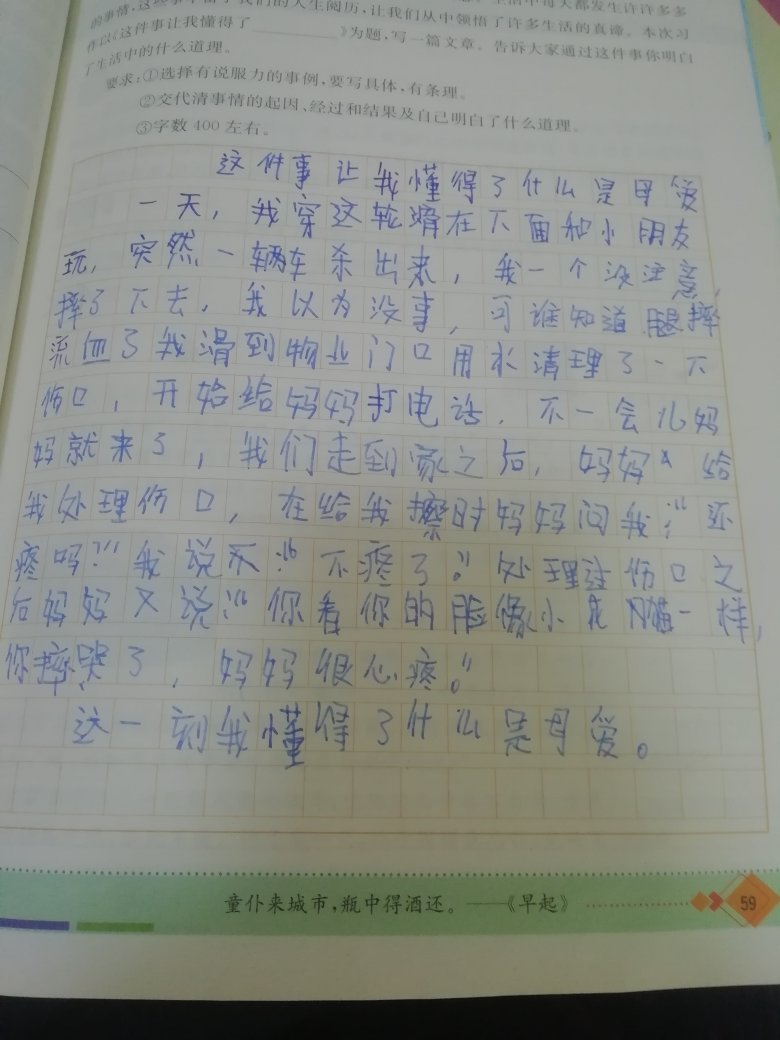 的事情,这些事丰富了我们的人生阅历,让我们从中领悟了许多生活的真谛。本次习
作以《这件事让我懂得了__________》为题,写一篇文章。告诉大家通过这件事你明白
了生活中的什么道理。
要求:①选择有说服力的事例,要写具体,有条理。
②交代清事情的起因、经过和结果及自己明白了什么道理。
③字数 400 左右。
这件事让我懂得了什么是母爱
一天,我穿这轮滑在下面和小朋友
玩,突然一辆车杀出来,我一个没注意,
摔了下去,我以为没事,可谁知道腿摔
流血了我滑到物业门口用水清理了一下
伤口,开始给妈妈打电话,不一会儿妈
妈就来了,我们走到家之后,妈妈 给
我处理伤口,在给我擦时妈妈问我:“还
疼吗?”我说 :“不疼了。”处理 伤口之
后妈妈又说:“你看你的脸像小花猫一样,
你摔哭了,妈妈很心疼。”
这一刻我懂得了什么是母爱。
童仆来城市,瓶中得酒还。——《早起》
59